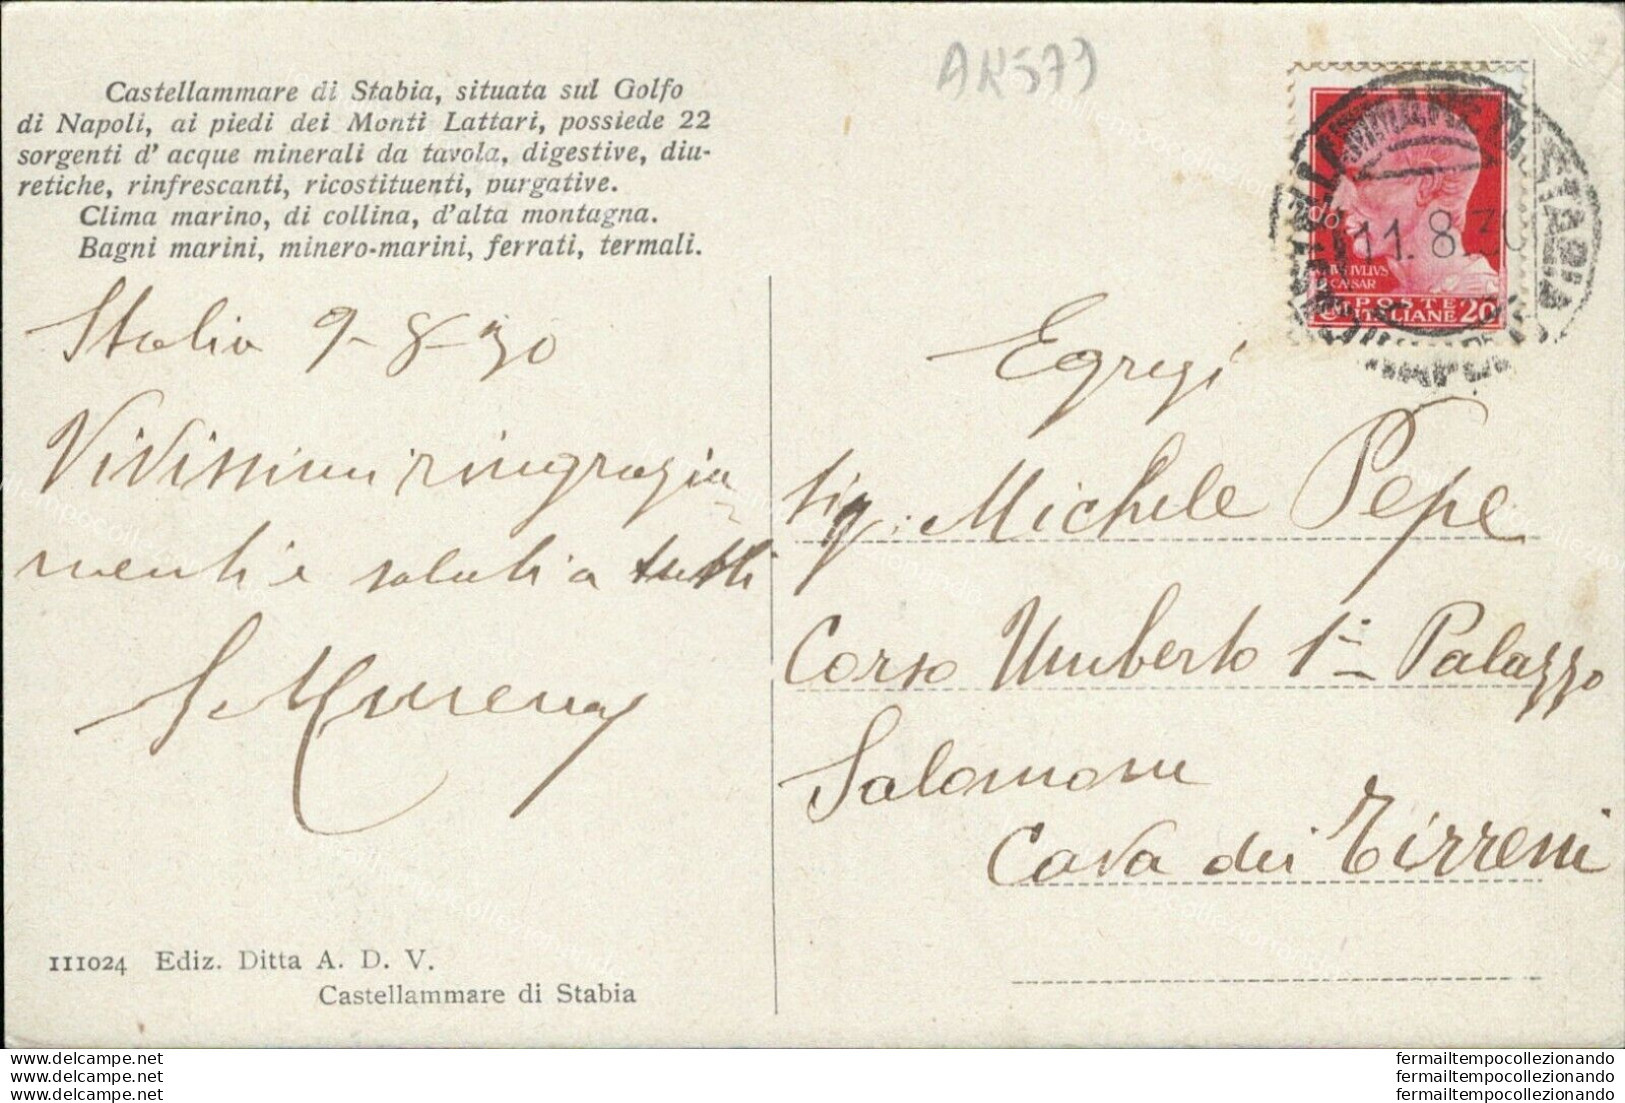 AK579
Castellammare di Stabia, situata sul Golfo
di Napoli, ai piedi dei Monti Lattari, possiede 22
sorgenti d' acque minerali da tavola, digestive, diu-
retiche, rinfrescanti, ricostituenti, purgative.
Clima marino, di collina, d'alta montagna.
Bagni marini, minero-marini, ferrati, termali.
Stabia 9-8-30
Vivissimi ringrazia-
menti e saluti a tutti
111024 Ediz. Ditta A. D. V.
Castellammare di Stabia
CASTELLAMMARE DI STABIA
11.8.30
NAPOLI
IVLIVS
CAESAR
POSTE
ITALIANE 20
Egregi
Sig. Michele Pepe
Corso Umberto 1° Palazzo
Salomone
Cava dei Tirreni
www.delcampe.net
www.delcampe.net
www.delcampe.net
fermailtempocollezionando
fermailtempocollezionando
fermailtempocollezionando